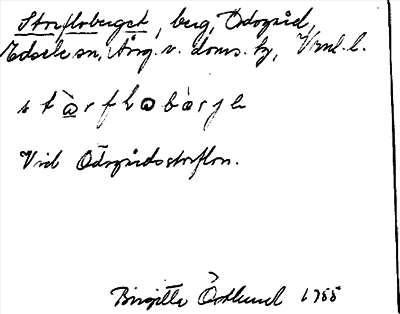 Storfloberget, berg, Ödsgård,
Edsele sn, Ång. v. doms. tg, Vrnl. l.
s t ɷ̀ r f l ɷ b æ r j e
Vid Ödsgårdsstorflon.
Birgitta Östlund 1955